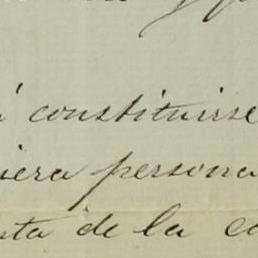 í constituirse
iera persona
sta de la co